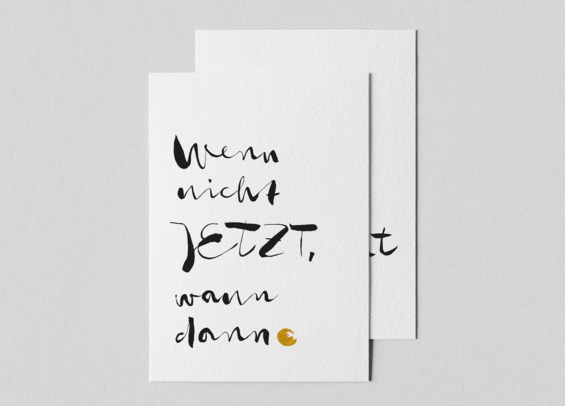 Wenn
nicht
JETZT,
wann
dann